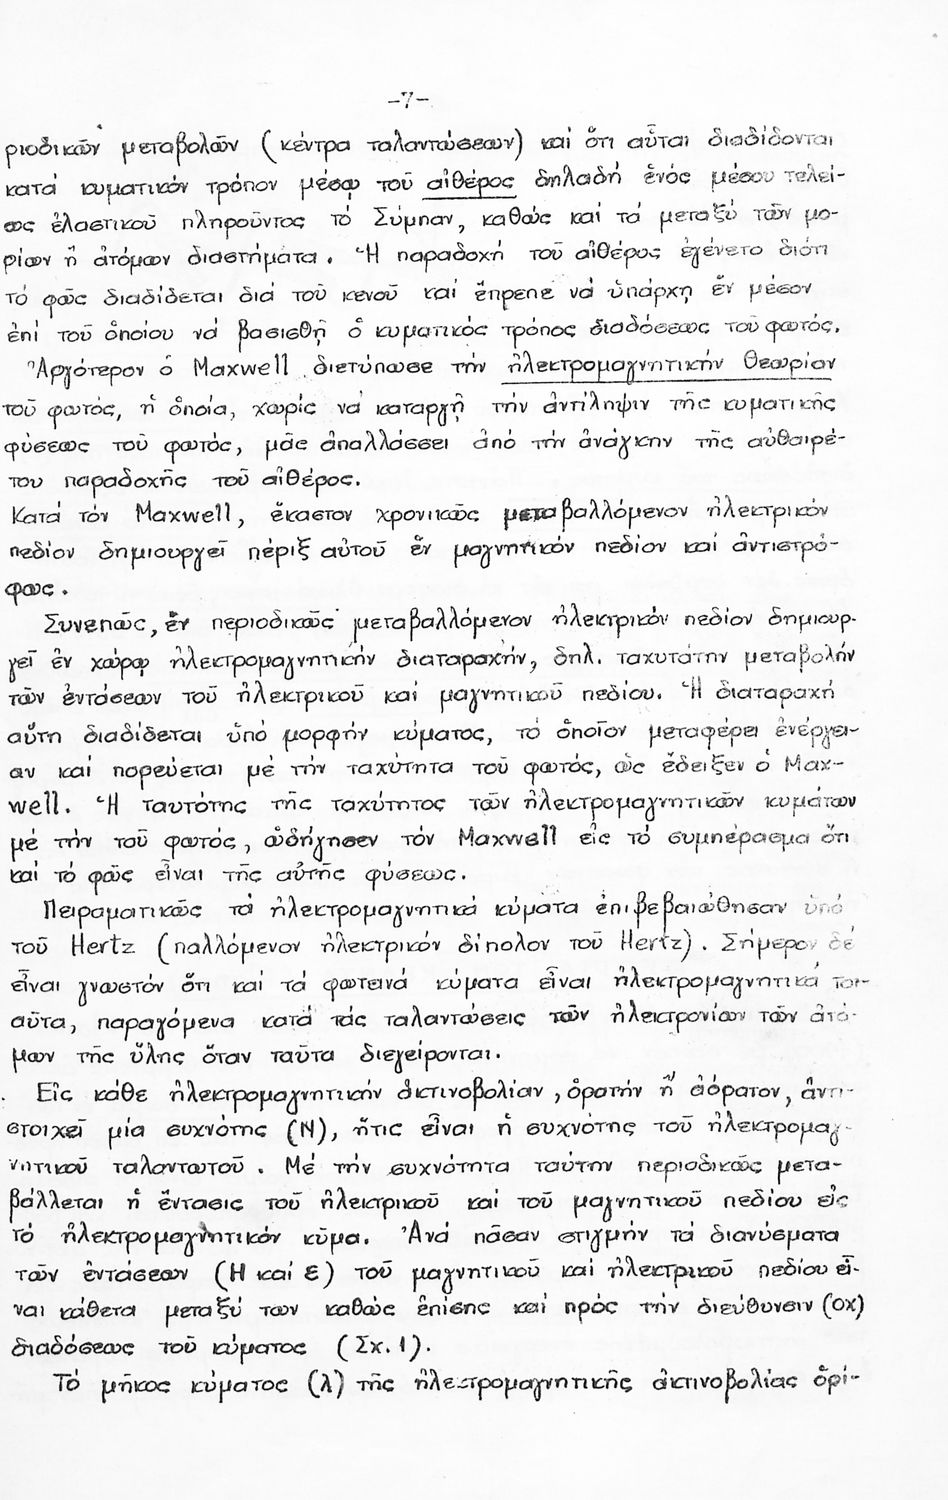 -7-
ριοδικῶν μεταβολῶν (κέντρα ταλαντώσεων) καί ὅτι αὗται διαδίδονται
κατά κυματικόν τρόπον μέσῳ τοῦ αἰθέρος δηλαδή ἑνός μέσου τελεί-
ως ἐλαστικοῦ πληροῦντος τό Σύμπαν, καθώς καί τά μεταξύ τῶν μο-
ρίων ἤ ἀτόμων διαστήματα. Ἡ παραδοχή τοῦ αἰθέρος ἐγένετο διότι
τό φῶς διαδίδεται διά τοῦ κενοῦ καί ἔπρεπε νά ὑπάρχῃ ἕν μέσον
ἐπί τοῦ ὁποίου νά βασισθῇ ὁ κυματικός τρόπος διαδόσεως τοῦ φωτός.
Ἀργότερον ὁ Maxwell διετύπωσε τήν ἠλεκτρομαγνητικήν θεωρίαν
τοῦ φωτός, ἡ ὁποία, χωρίς νά καταργῇ τήν ἀντίληψιν τῆς κυματικῆς
φύσεως τοῦ φωτός, μᾶς ἀπαλλάσσει ἀπό τήν ἀνάγκην τῆς αὐθαιρέ-
του παραδοχῆς τοῦ αἰθέρος.
Κατά τόν Maxwell, ἕκαστον χρονικῶς μεταβαλλόμενον ἠλεκτρικόν
πεδίον δημιουργεῖ πέριξ αὐτοῦ ἕν μαγνητικόν πεδίον καί ἀντιστρό-
φως.
Συνεπῶς, ἕν περιοδικῶς μεταβαλλόμενον ἠλεκτρικόν πεδίον δημιουρ-
γεῖ ἐν χώρῳ ἠλεκτρομαγνητικήν διαταραχήν, δηλ. ταχυτάτην μεταβολήν
τῶν ἐντάσεων τοῦ ἠλεκτρικοῦ καί μαγνητικοῦ πεδίου. Ἡ διαταραχή
αὕτη διαδίδεται ὑπό μορφήν κύματος, τό ὁποῖον μεταφέρει ἐνέργει-
αν καί πορεύεται μέ τήν ταχύτητα τοῦ φωτός, ὡς ἔδειξεν ὁ Max-
well. Ἡ ταυτότης τῆς ταχύτητος τῶν ἠλεκτρομαγνητικῶν κυμάτων
μέ τήν τοῦ φωτός, ὡδήγησεν τόν Maxwell εἰς τό συμπέρασμα ὅτι
καί τό φῶς εἶναι τῆς αὐτῆς φύσεως.
Πειραματικῶς τά ἠλεκτρομαγνητικά κύματα ἐπιβεβαιώθησαν ὑπό
τοῦ Hertz (παλλόμενον ἠλεκτρικόν δίπολον τοῦ Hertz). Σήμερον δέ
εἶναι γνωστόν ὅτι καί τά φωτεινά κύματα εἶναι ἠλεκτρομαγνητικά τοι-
αῦτα, παραγόμενα κατά τάς ταλαντώσεις τῶν ἠλεκτρονίων τῶν ἀτό-
μων τῆς ὕλης ὅταν ταῦτα διεγείρονται.
Εἰς κάθε ἠλεκτρομαγνητικήν ἀκτινοβολίαν, ὁρατήν ἤ ἀόρατον, ἀντι-
στοιχεῖ μία συχνότης (Ν), ἥτις εἶναι ἡ συχνότης τοῦ ἠλεκτρομαγ-
νητικοῦ ταλαντωτοῦ. Μέ τήν συχνότητα ταύτην περιοδικῶς μετα-
βάλλεται ἡ ἔντασις τοῦ ἠλεκτρικοῦ καί τοῦ μαγνητικοῦ πεδίου εἰς
τό ἠλεκτρομαγνητικόν κῦμα. Ἀνά πᾶσαν στιγμήν τά διανύσματα
τῶν ἐντάσεων (Η καί ε) τοῦ μαγνητικοῦ καί ἠλεκτρικοῦ πεδίου εἶ-
ναι κάθετα μεταξύ των καθώς ἐπίσης καί πρός τήν διεύθυνσιν (οχ)
διαδόσεως τοῦ κύματος (Σχ. 1).
Τό μῆκος κύματος (λ) τῆς ἠλεκτρομαγνητικῆς ἀκτινοβολίας ὁρί-